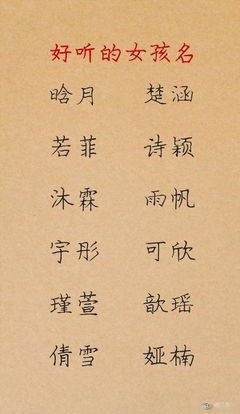 好听的女孩名
晗月 楚涵
若菲 诗颖
沐霖 雨帆
宇彤 可欣
瑾萱 歆瑶
倩雪 娅楠